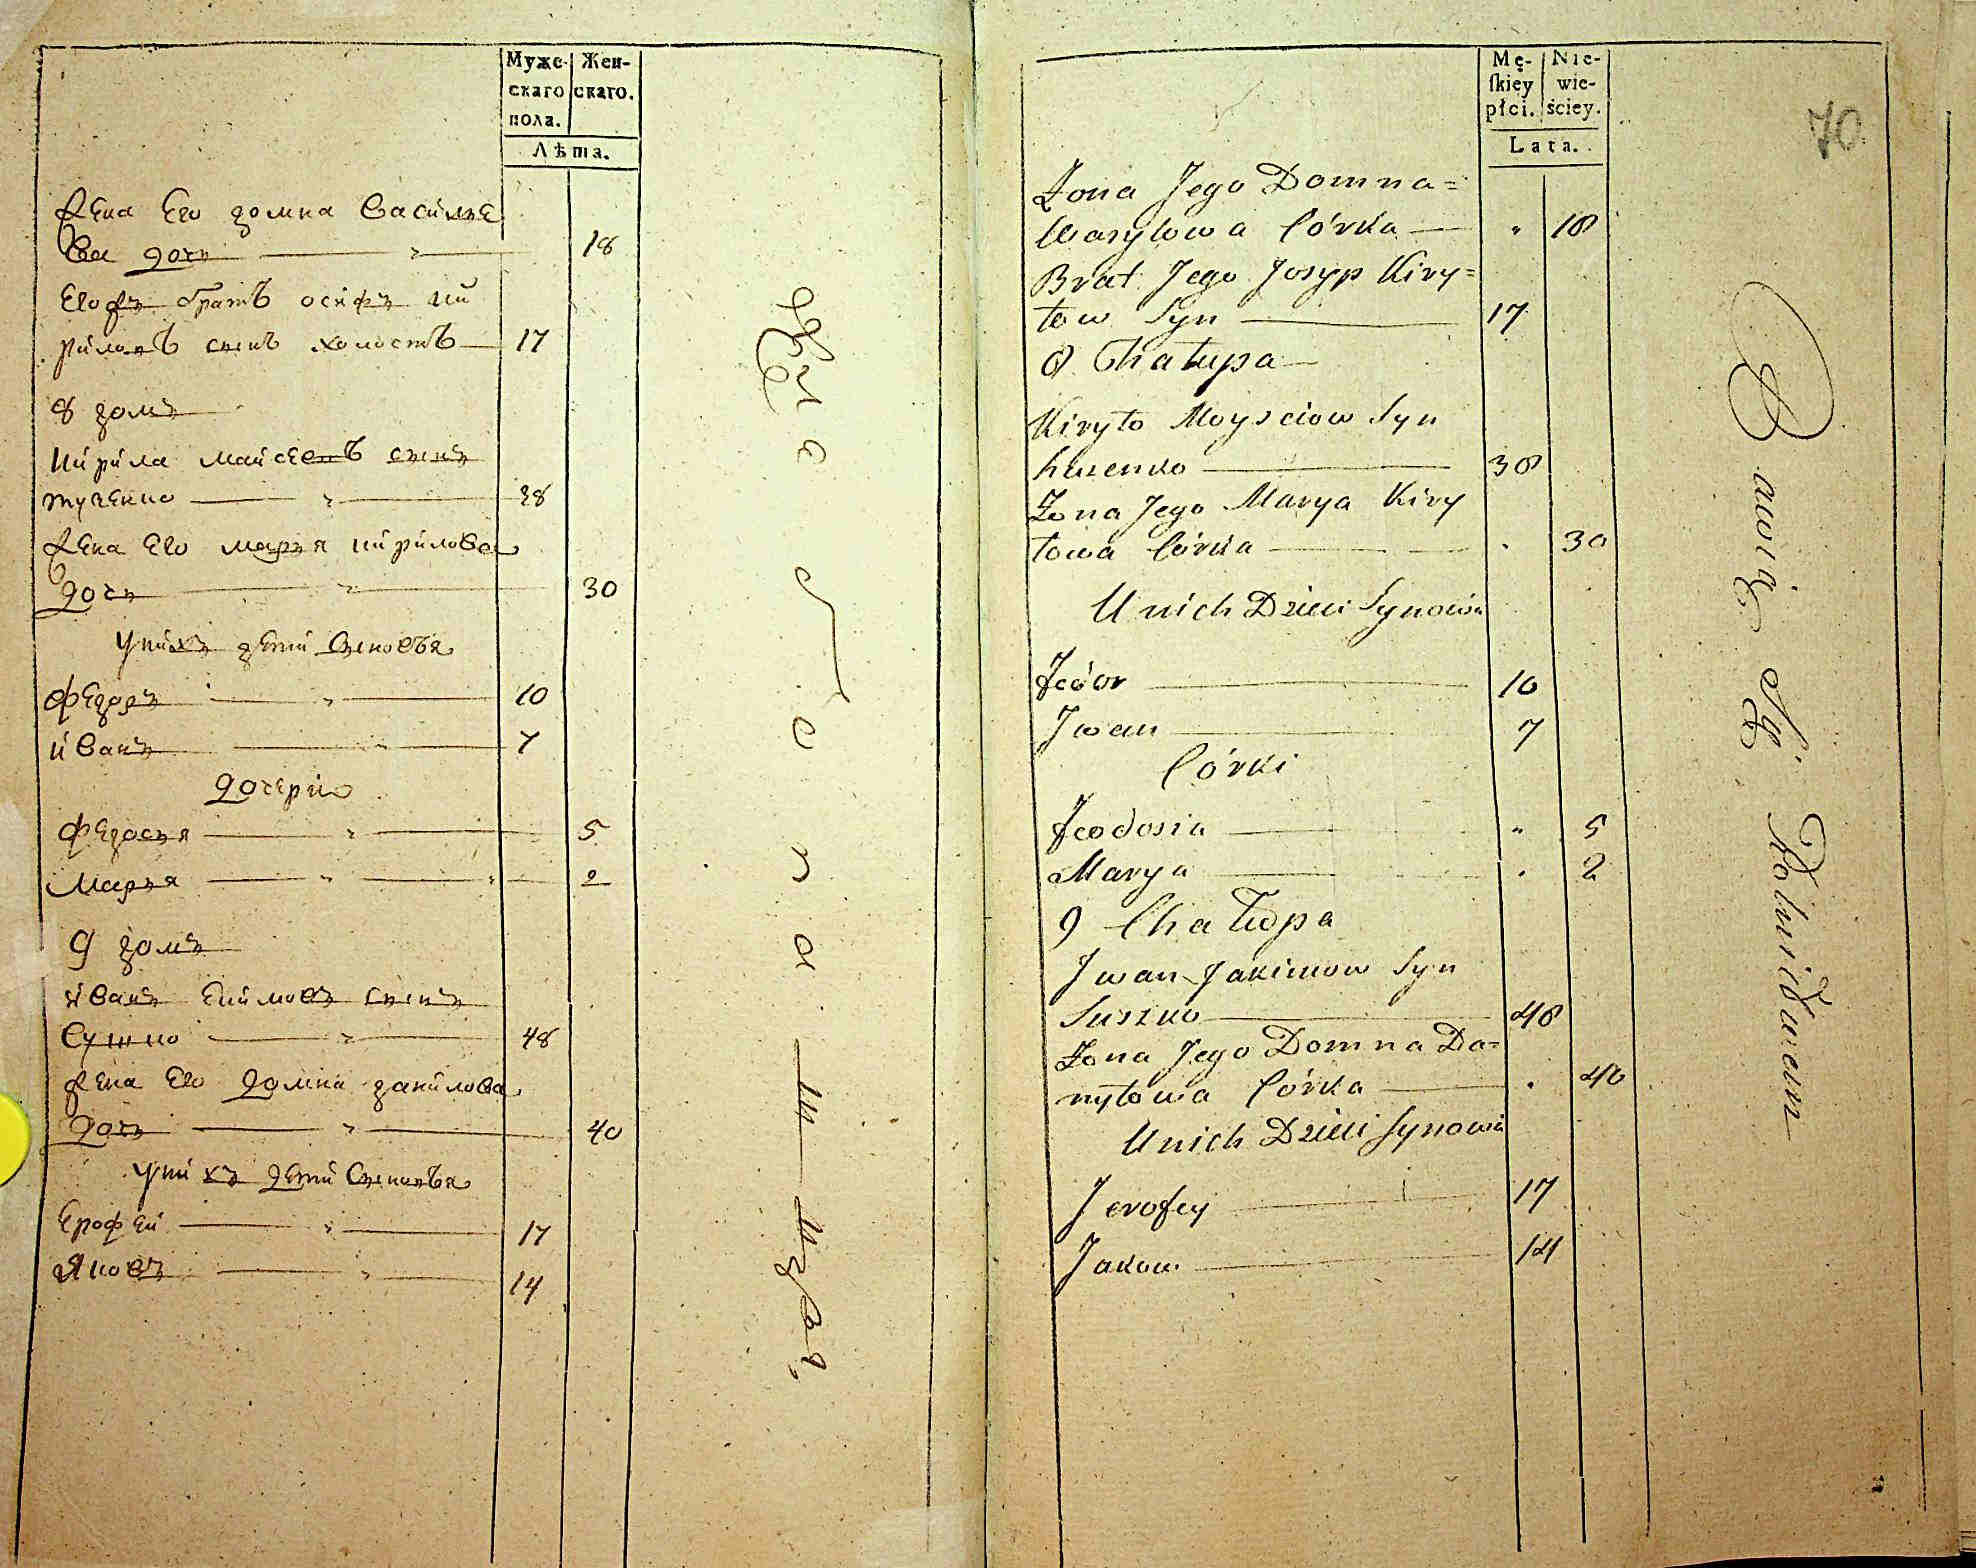 Муже-
скаго
пола.
Жен-
скаго.
Лѣта.
жена Его домна василие
ва дочь 18
Егожъ братъ осифъ ки
риловъ сынъ холостъ 17
8 домъ
кирила майсеевъ сынъ
38
жена Его марья кирилова
дочь 30
унихъ дети сыновья
Федоръ 10
иванъ 7
дочери
Федосья 5
марья 2
9 домъ
иванъ Екимовъ сынъ
Сушко 48
жена Его домна данилова
дочь 40
унихъ дети сыновья
Ерофей 17
Яковъ 14
Mę-
skiey
płci.
Nie-
wie-
ściey.
Lata.
70.
Żona Jego Domna=
Wasylowa Córka " 18
Brat Jego Josyp Kiry=
łow Syn 17
8 Chałupa
Kiryło Moysciow Syn
38
Żona Jego Marya Kiry
łowa Córka . 30
U nich Dzieci Synowia
Feodor 10
Jwan 7
Córki
Feodosia " 5
Marya . 2
9 Chałupa
Jwan Jakimow Syn
Suszko 48
Żona Jego Domna Da=
nyłowa Córka . 40
U nich Dzieci Synowia
Jerofey 17
Jakow 14
Bawią Się Rolnictwem